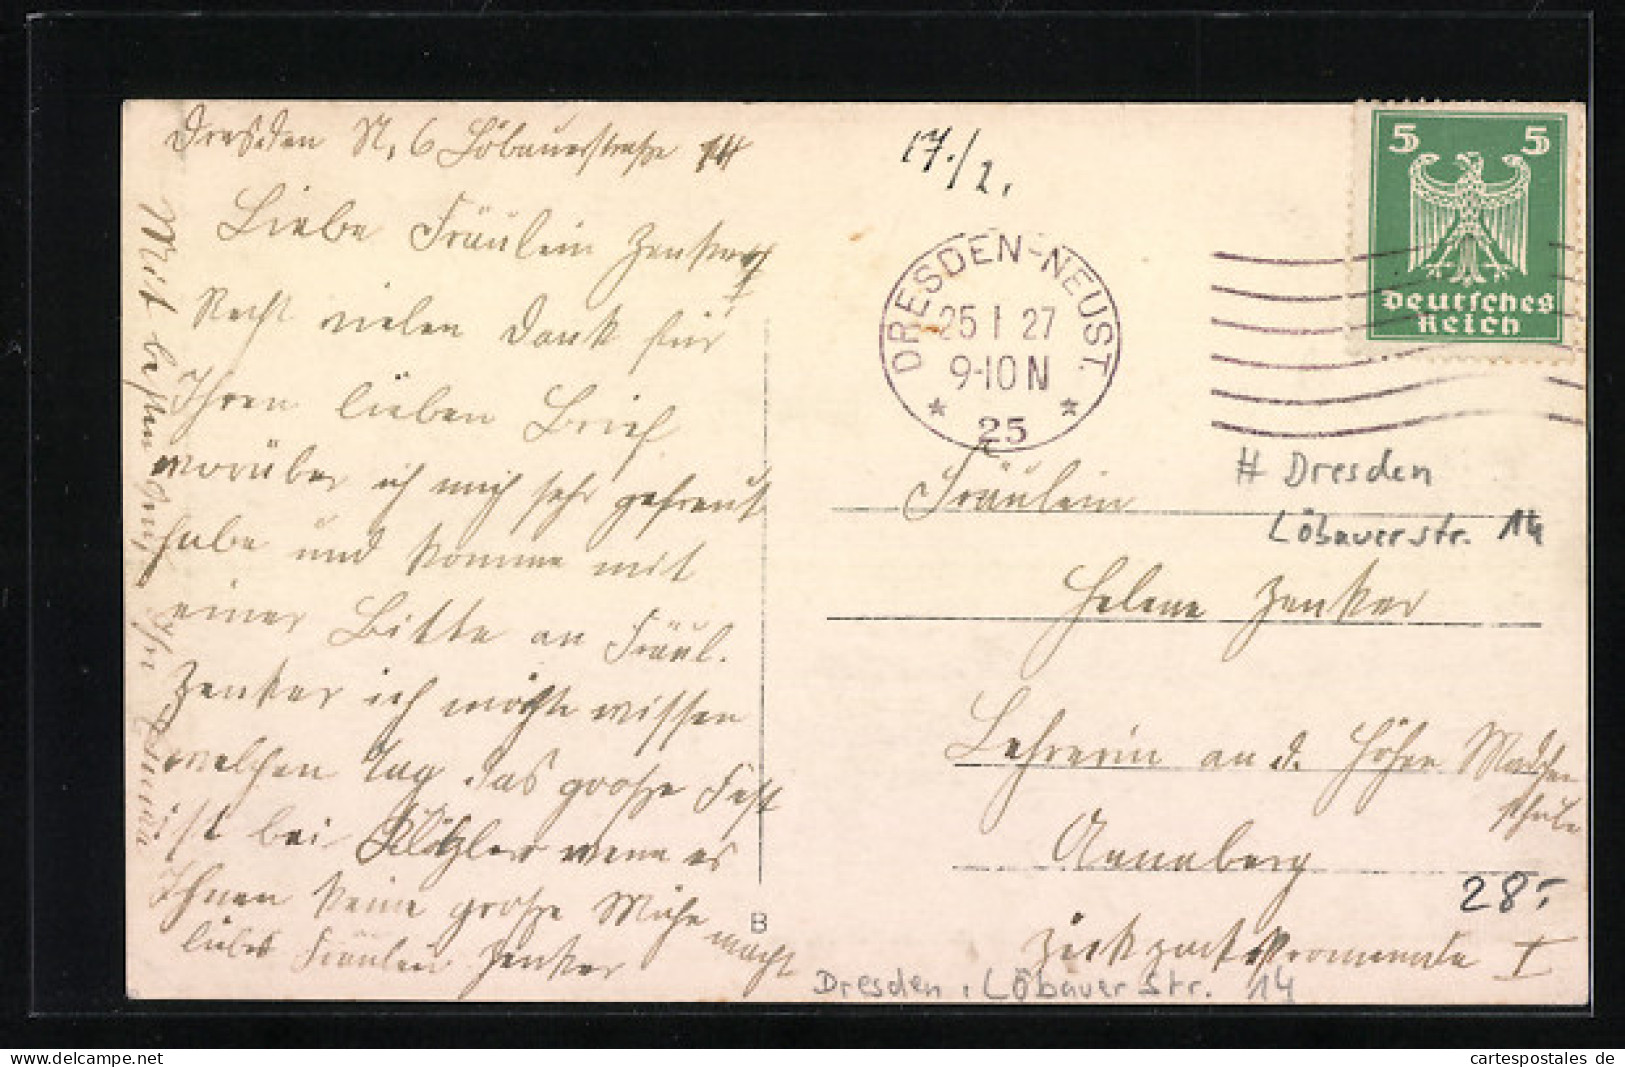 Dresden N. 6 Löbauerstraße 14
Liebe Fräulein Zenker
Recht vielen Dank für
Ihren lieben Brief
worüber ich mich sehr gefreut
habe und komme mit
einer Bitte an Fräul.
Zenker ich möchte wissen
welchen Tag das große Fest
ist bei wenn es
Ihnen keine große Mühe macht
liebes Fräulein Zenker
Mit besten Gruß Ihre
17./1.
DRESDEN-NEUST.
25 1 27
9-10 N
* 25 *
5 5
Deutsches
Reich
# Dresden
Löbauerstr. 14
Fräulein
Helene Zenker
Lehrerin an d. Höhr Mädchen
schule
Annaberg
28.-
promenade I
B
Dresden, Löbauer Str. 14
cartespostales de collection
cartespostales de